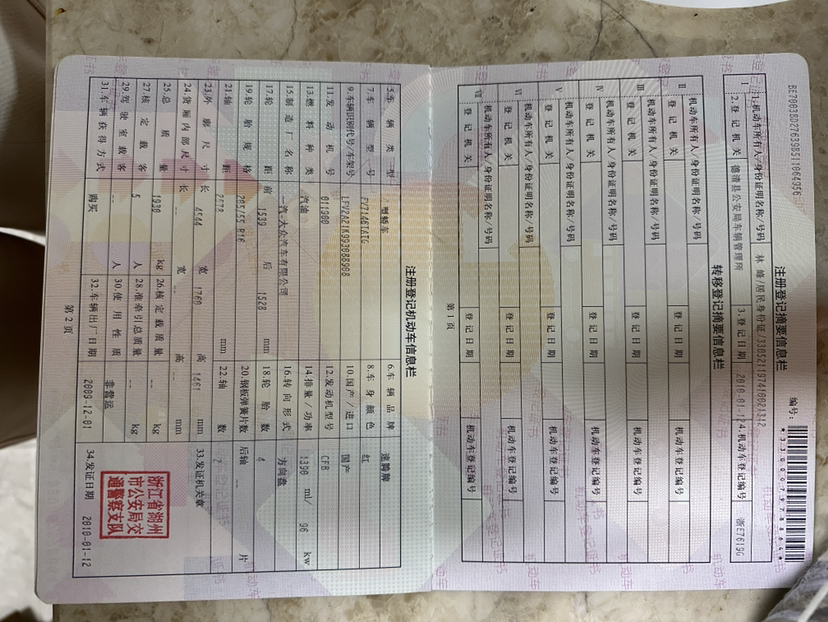 注册登记摘要信息栏
编号:
I
1.机动车所有人/身份证明名称/号码 林 峰/居民身份证/
2.登记机关 德清县公安局车辆管理所 3.登记日期 2010-01-12 4.机动车登记编号 浙E7619G
转移登记摘要信息栏
II 机动车所有人/身份证明名称/号码
登记机关 登记日期 机动车登记编号
III 机动车所有人/身份证明名称/号码
登记机关 登记日期 机动车登记编号
IV 机动车所有人/身份证明名称/号码
登记机关 登记日期 机动车登记编号
V 机动车所有人/身份证明名称/号码
登记机关 登记日期 机动车登记编号
VI 机动车所有人/身份证明名称/号码
登记机关 登记日期 机动车登记编号
VII 机动车所有人/身份证明名称/号码
登记机关 登记日期 机动车登记编号
第 1 页
注册登记机动车信息栏
5.车辆类型 型轿车 6.车辆品牌 速腾牌
7.车辆型号 8.车身颜色 红
9.车辆识别代号/车架号 10.国产/进口 国产
11.发动机号 011900 12.发动机型号 CFB
13.燃料种类 汽油 14.排量/功率 1390 ml/ 96 kw
15.制造厂名称 一汽-大众汽车有限公司 16.转向形式 方向盘
17.轮距 前 1539 后 1528 mm 18.轮胎数 4
19.轮胎规格 205/55 R16 20.钢板弹簧片数 后轴 -- 片
21.轴距 2578 mm 22.轴数 2
23.外廓尺寸 长 4544 宽 1760 高 1461 mm 33.发证机关章
24.货厢内部尺寸 长 -- 宽 -- 高 -- mm
25.总质量 1930 kg 26.核定载质量 -- kg
27.核定载客 5 人 28.准牵引总质量 -- kg
29.驾驶室载客 -- 人 30.使用性质 非营运
31.车辆获得方式 购买 32.车辆出厂日期 2009-12-01 34.发证日期 2010-01-12
浙江省湖州
市公安局交
通警察支队
第 2 页